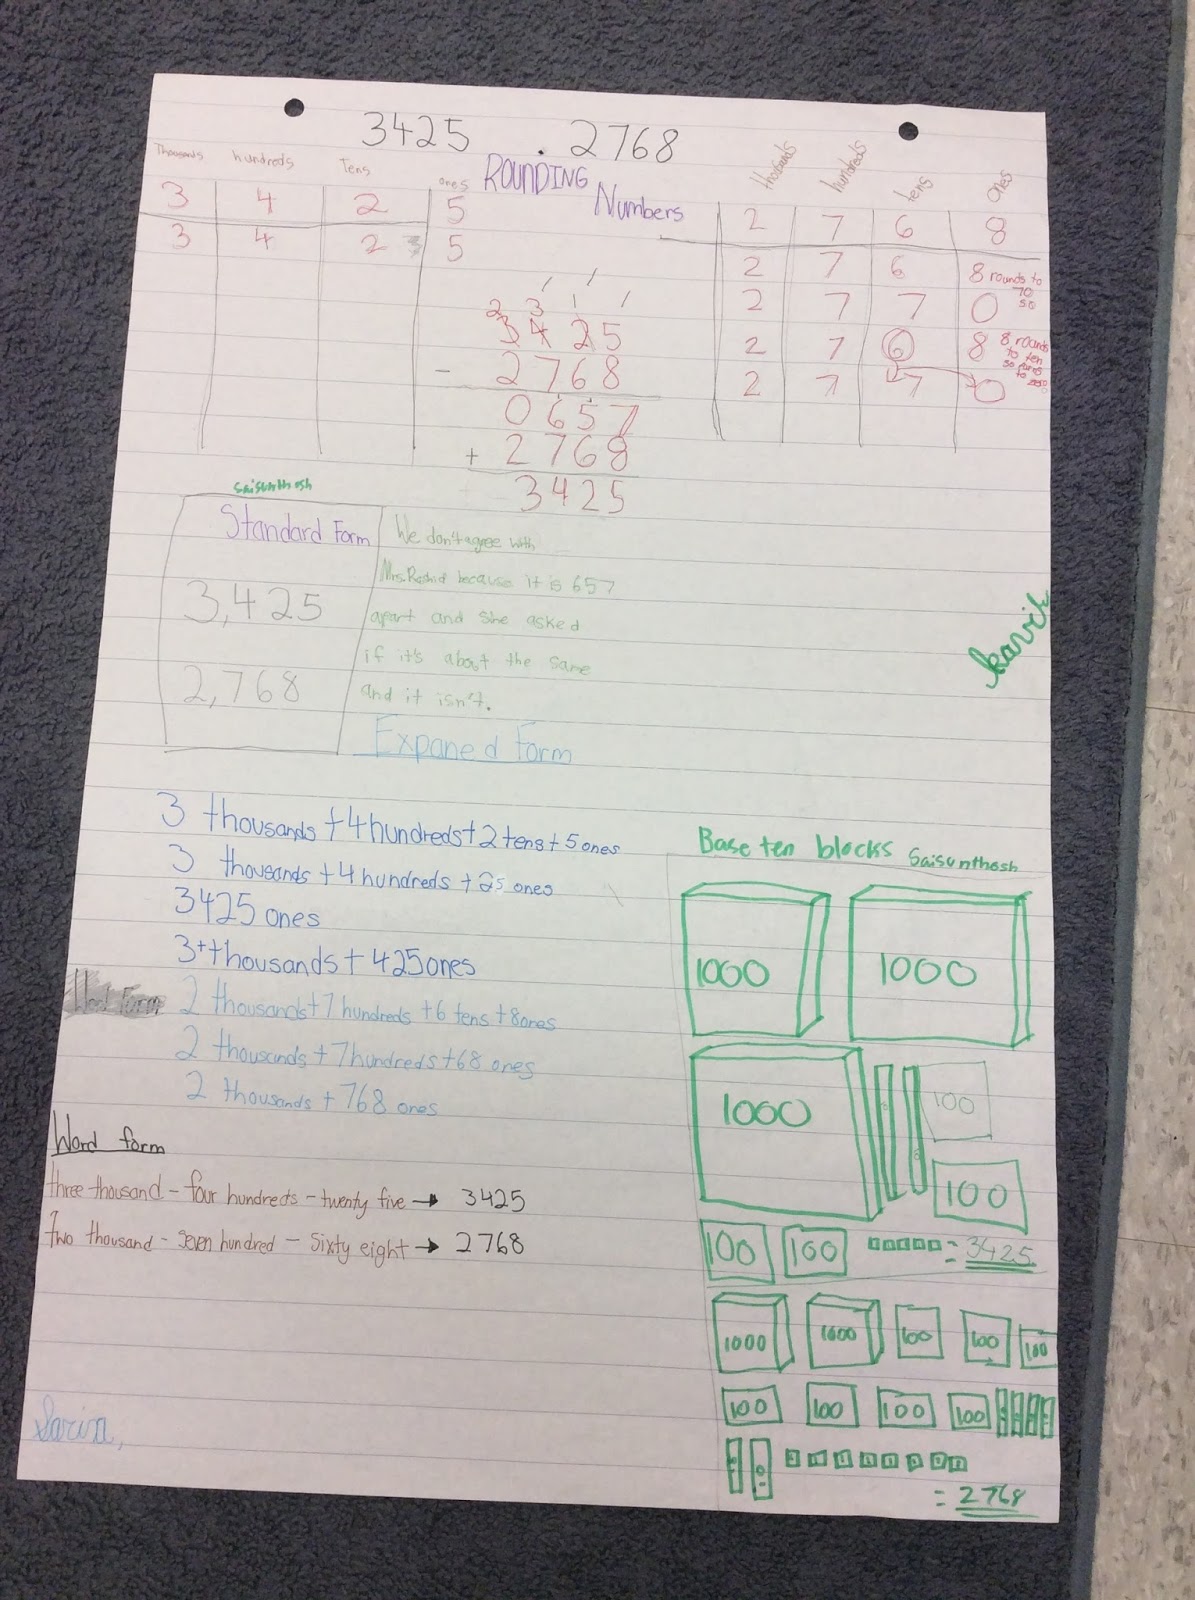 3425 . 2768
Thousands hundreds Tens ones
3 4 2 5
3 4 2 5
ROUNDING
Numbers
thousands hundreds tens ones
2 7 6 8
2 7 6 8 rounds to
70
so
2 7 7 0
2 7 6 8 8 rounds
to ten
2 7 7 0
2 3 1 1
3425
- 2768
0657
+ 2768
3425
Saisunthosh
Standard Form
3,425
2,768
We don't agree with
Mrs.Rashid because it is 657
apart and she asked
if it's about the same
and it isn't.
Kavil
Expaned Form
3 thousands +4 hundreds+2 tens+5 ones
3 thousands +4 hundreds +25 ones
3425 ones
3+thousands+425ones
Word Form
2 thousands+7 hundreds +6 tens +8ones
2 thousands +7hundreds+68 ones
2 thousands + 768 ones
Word form
three thousand - four hundreds - twenty five → 3425
Two thousand - seven hundred - sixty eight → 2768
Base ten blocks Saisunthosh
1000 1000
1000 100
100
100 100 = 3425
1000 1000 100 100 100
100 100 100 100
= 2768